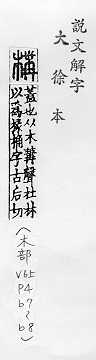 說文解字
大徐本
構
蓋也从木冓聲杜林
以爲椽桷字古后切
(木部
V6上
P4
b7~
b8)